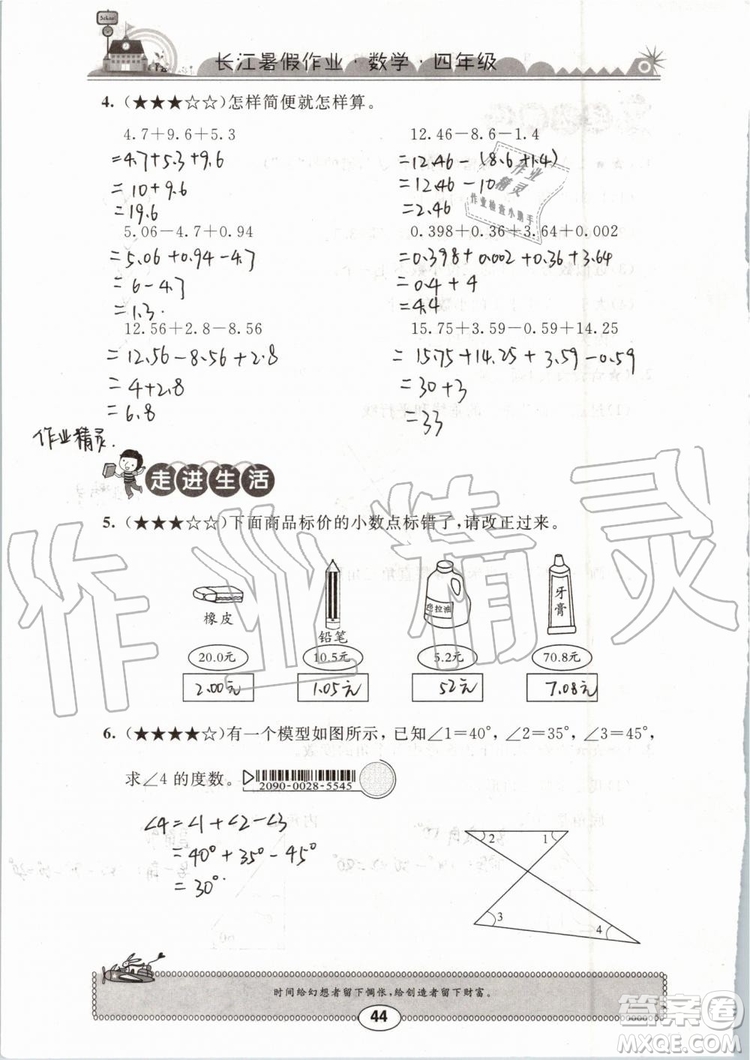 School
长江暑假作业·数学·四年级
4.(★★★☆☆)怎样简便就怎样算。
4.7+9.6+5.3
=4.7+5.3+9.6
=10+9.6
=19.6
12.46-8.6-1.4
=12.46-(8.6+1.4)
=12.46-10
=2.46
作业
精灵
作业检查小助手
5.06-4.7+0.94
=5.06+0.94-4.7
=6-4.7
=1.3.
0.398+0.36+3.64+0.002
=0.398+0.002+0.36+3.64
=0.4+4
=4.4
12.56+2.8-8.56
=12.56-8.56+2.8
=4+2.8
=6.8
15.75+3.59-0.59+14.25
=15.75+14.25+3.59-0.59
=30+3
=33
作业精灵.
走进生活
5.(★★★☆☆)下面商品标价的小数点标错了,请改正过来。
橡皮
铅笔
色拉油
牙膏
20.0元 10.5元 5.2元 70.8元
2.00元 1.05元 52元 7.08元
作业精灵
6.(★★★★☆)有一个模型如图所示,已知∠1=40°,∠2=35°,∠3=45°,
求∠4的度数。
2090-0028-5545
∠4=∠1+∠2-∠3
=40°+35°-45°
=30°.
2 1
3 4
时间给幻想者留下惆怅,给创造者留下财富。
44
答案卷
MXQE.COM